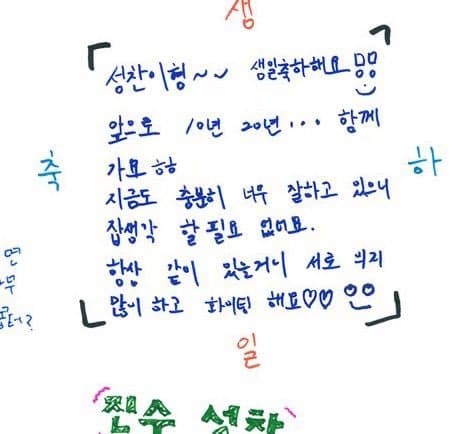 생
성찬이형~~ 생일축하해요
앞으로 10년 20년... 함께
축
가요 ㅎㅎ
하
지금도 충분히 너무 잘하고 있으니
잡생각 할 필요 없어요.
항상 같이 있을거니 서로 의리
많이 하고 화이팅 해요♡♡
일
연
성찬